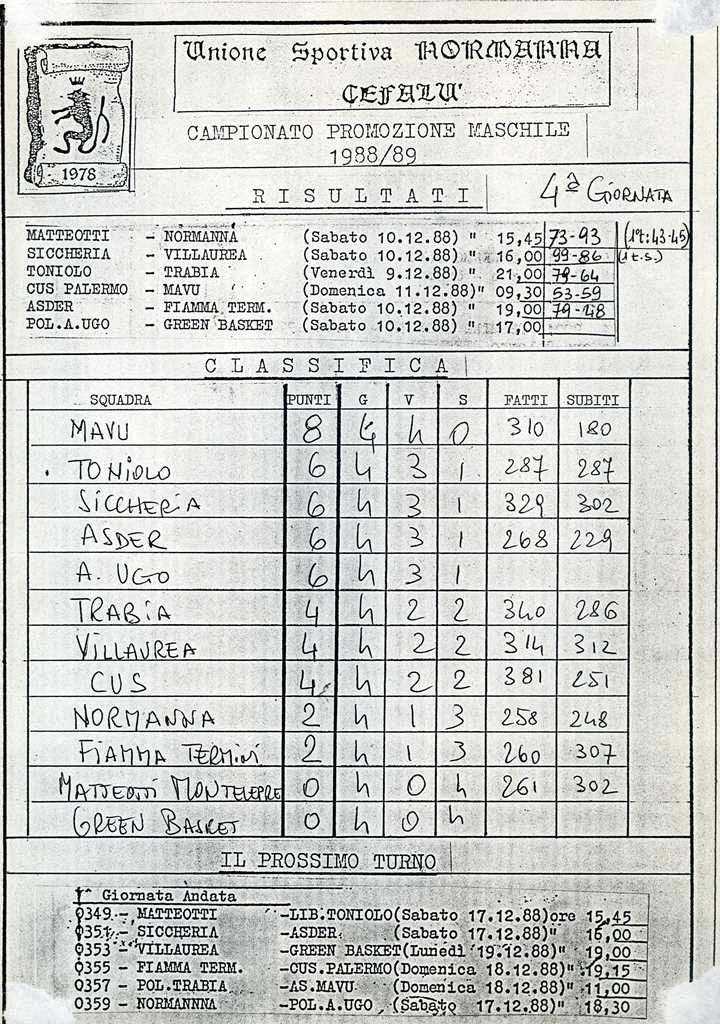 Unione Sportiva NORMANNA
CEFALU'
1978
CAMPIONATO PROMOZIONE MASCHILE
1988/89
RISULTATI 4ª GIORNATA
MATTEOTTI - NORMANNA (Sabato 10.12.88) " 15,45 73-93 (1°t:43-45)
SICCHERIA - VILLAUREA (Sabato 10.12.88) " 16,00 99-86 (1 t.s.)
TONIOLO - TRABIA (Venerdì 9.12.88) " 21,00 79-64
CUS PALERMO - MAVU (Domenica 11.12.88)" 09,30 53-59
ASDER - FIAMMA TERM. (Sabato 10.12.88) " 19,00 79-48
POL.A.UGO - GREEN BASKET (Sabato 10.12.88) " 17,00
CLASSIFICA
SQUADRA PUNTI G V S FATTI SUBITI
MAVU 8 4 4 0 310 180
TONIOLO 6 4 3 1 287 287
SICCHERIA 6 4 3 1 329 302
ASDER 6 4 3 1 268 229
A. UGO 6 4 3 1
TRABIA 4 4 2 2 340 286
VILLAUREA 4 4 2 2 314 312
CUS 4 4 2 2 381 251
NORMANNA 2 4 1 3 258 248
FIAMMA TERMINI 2 4 1 3 260 307
MATTEOTTI MONTELEPRE 0 4 0 4 261 302
GREEN BASKET 0 4 0 4
IL PROSSIMO TURNO
Giornata Andata
0349 - MATTEOTTI -LIB.TONIOLO(Sabato 17.12.88)ore 15,45
0351 - SICCHERIA -ASDER (Sabato 17.12.88)" 16,00
0353 - VILLAUREA -GREEN BASKET(Lunedì 19.12.88)" 19,00
0355 - FIAMMA TERM. -CUS.PALERMO(Domenica 18.12.88)" 19,15
0357 - POL.TRABIA -AS.MAVU (Domenica 18.12.88)" 11,00
0359 - NORMANNNA -POL.A.UGO (Sabato 17.12.88)" 18,30